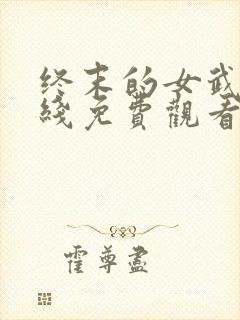 终末的女武
綫免費觀看
霍尊盡